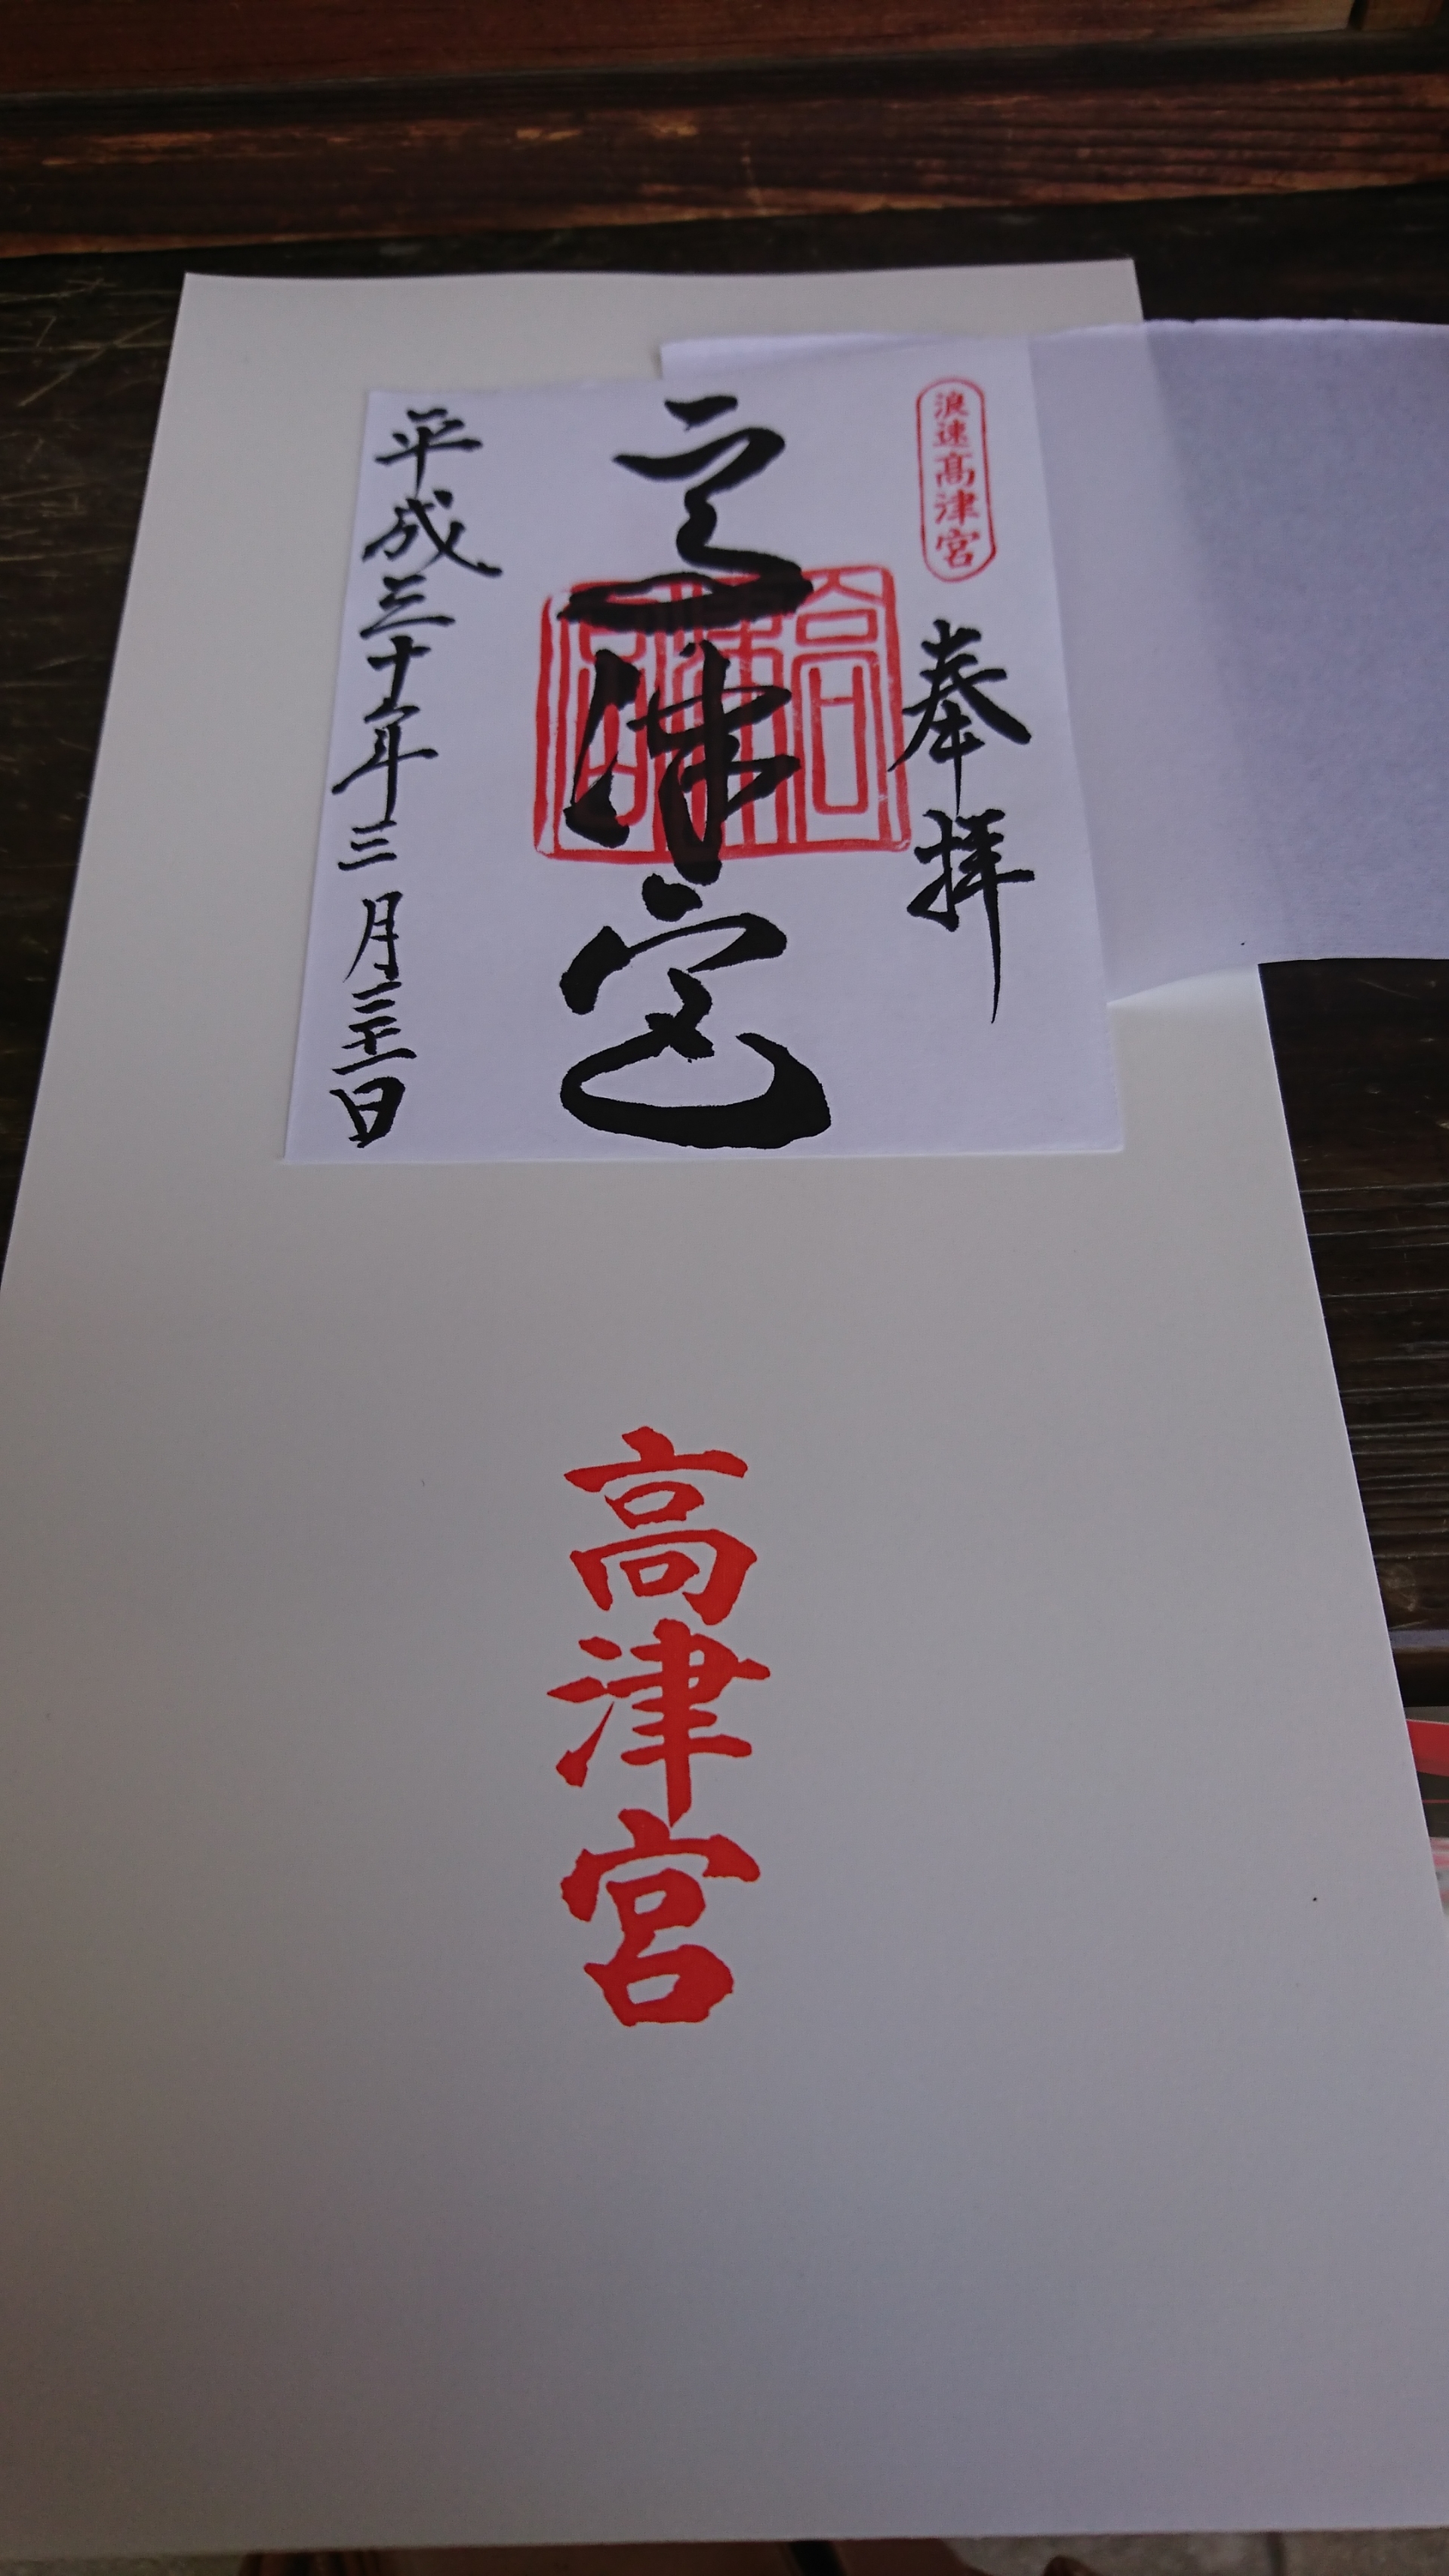 浪速高津宮
奉拝
高津宮
高津宮
平成三十年三月三十一日
高津宮